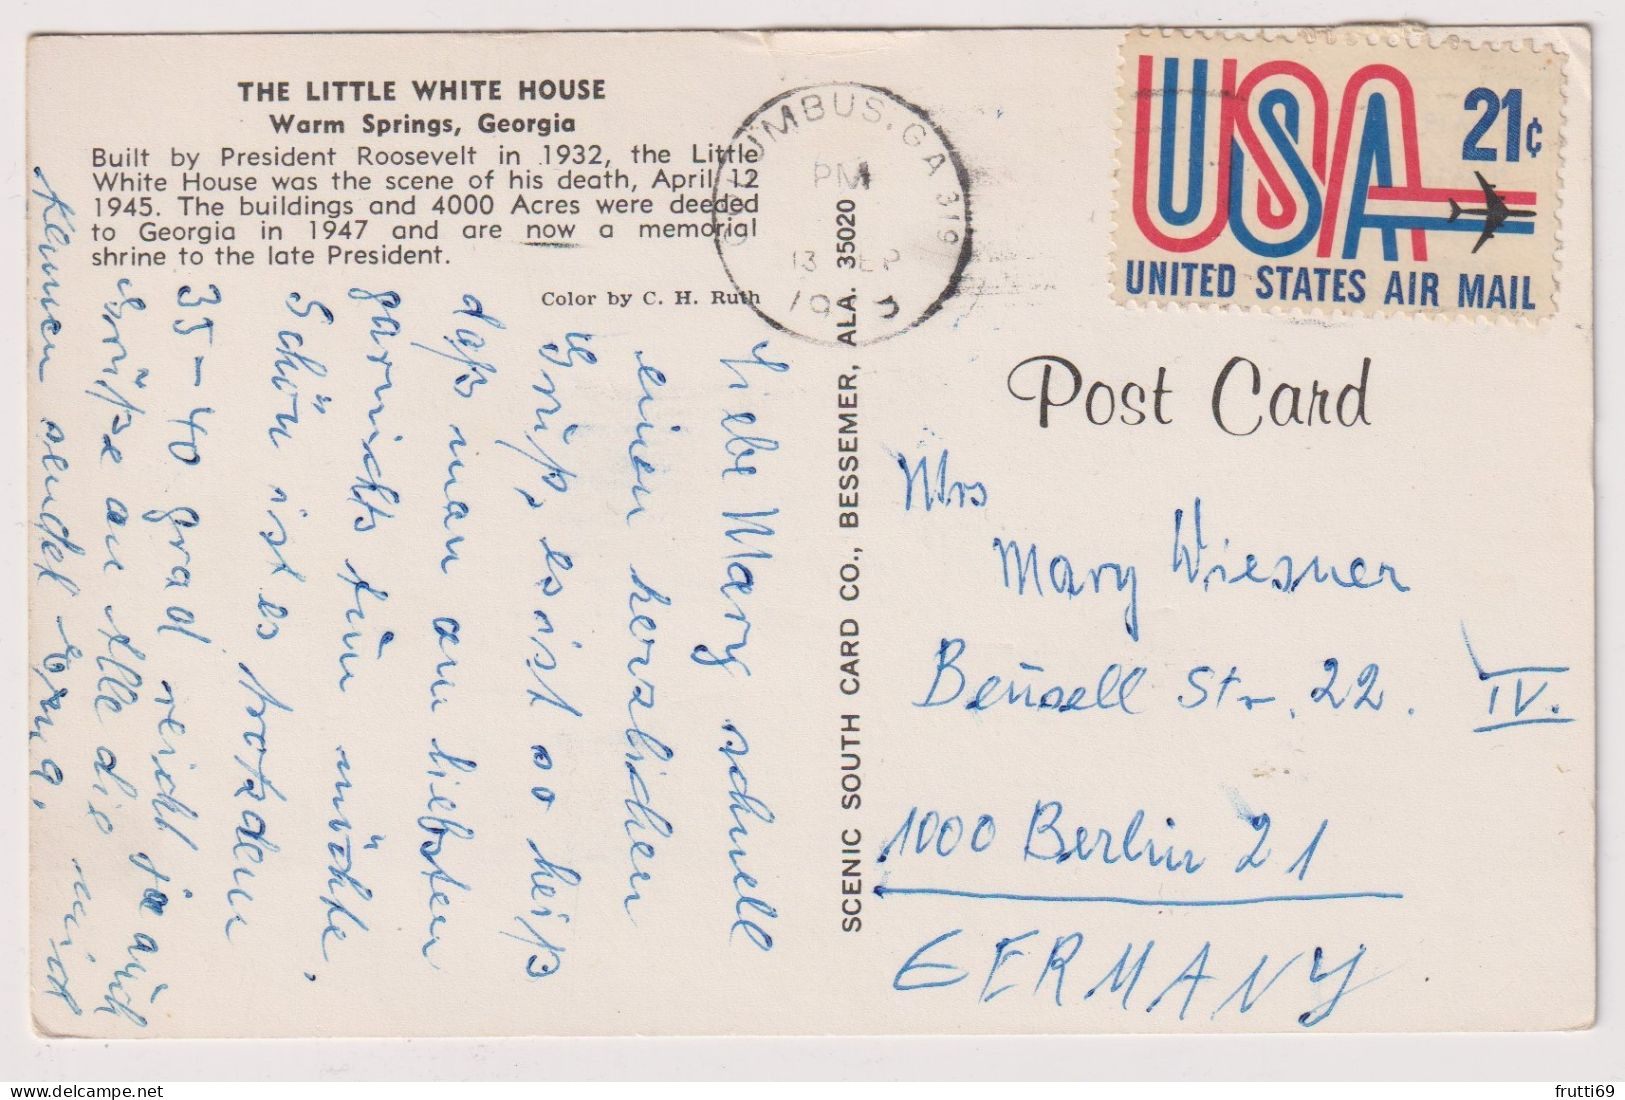 THE LITTLE WHITE HOUSE
Warm Springs, Georgia
Built by President Roosevelt in 1932, the Little
White House was the scene of his death, April 12
1945. The buildings and 4000 Acres were deeded
to Georgia in 1947 and are now a memorial
shrine to the late President.
Color by C. H. Ruth
Liebe Mary schnell
einen herzlichen
Grüß, es ist so heiß
daß man am liebsten
garnichts tun möchte,
Schön ist es trotzden
35-40 grad reicht ja auch
Grüße an Alle die mich
kennen sendet Erna.
SCENIC SOUTH CARD CO., BESSEMER, ALA. 35020
UMBUS, GA 319
PM
13
USA 21¢
UNITED STATES AIR MAIL
Post Card
Mrs
Mary Wiesner
Beüsell Str. 22. IV.
1000 Berlin 21
GERMANY
frutti69